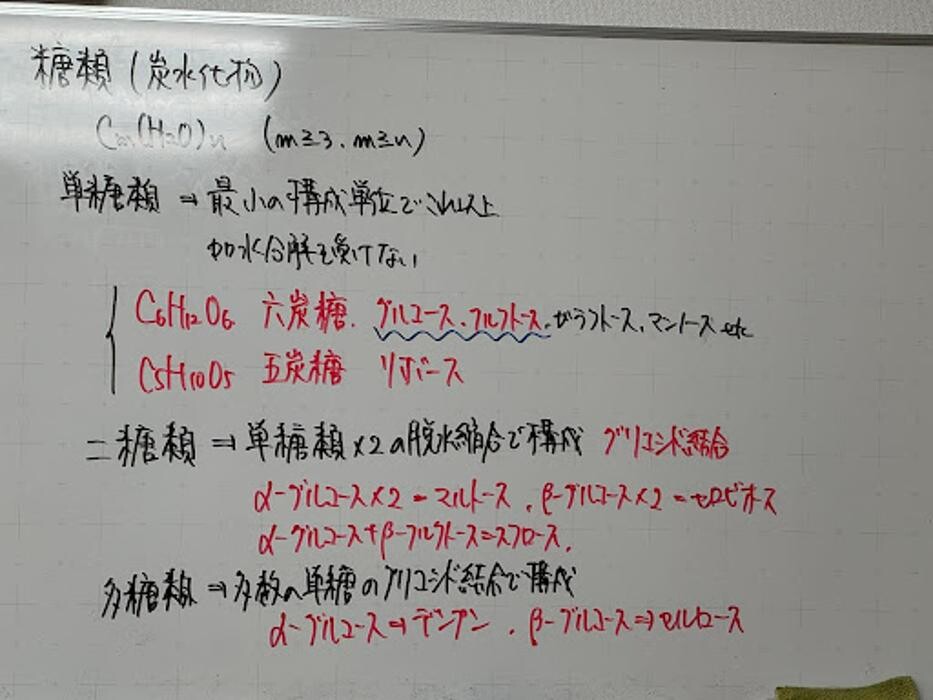 糖類(炭水化物)
Cm(H2O)n (m≧3、m≧n)
単糖類 ⇒ 最小の構成単位でこれ以上
加水分解を受けない
C6H12O6 六炭糖、グルコース、フルクトース、ガラクトース、マンノース etc
C5H10O5 五炭糖 リボース
二糖類 ⇒ 単糖類×2の脱水縮合で構成 グリコシド結合
α-グルコース×2=マルトース、β-グルコース×2=セロビオース
α-グルコース+β-フルクトース=スクロース、
多糖類 ⇒ 多数の単糖のグリコシド結合で構成
α-グルコース⇒デンプン、β-グルコース⇒セルロース